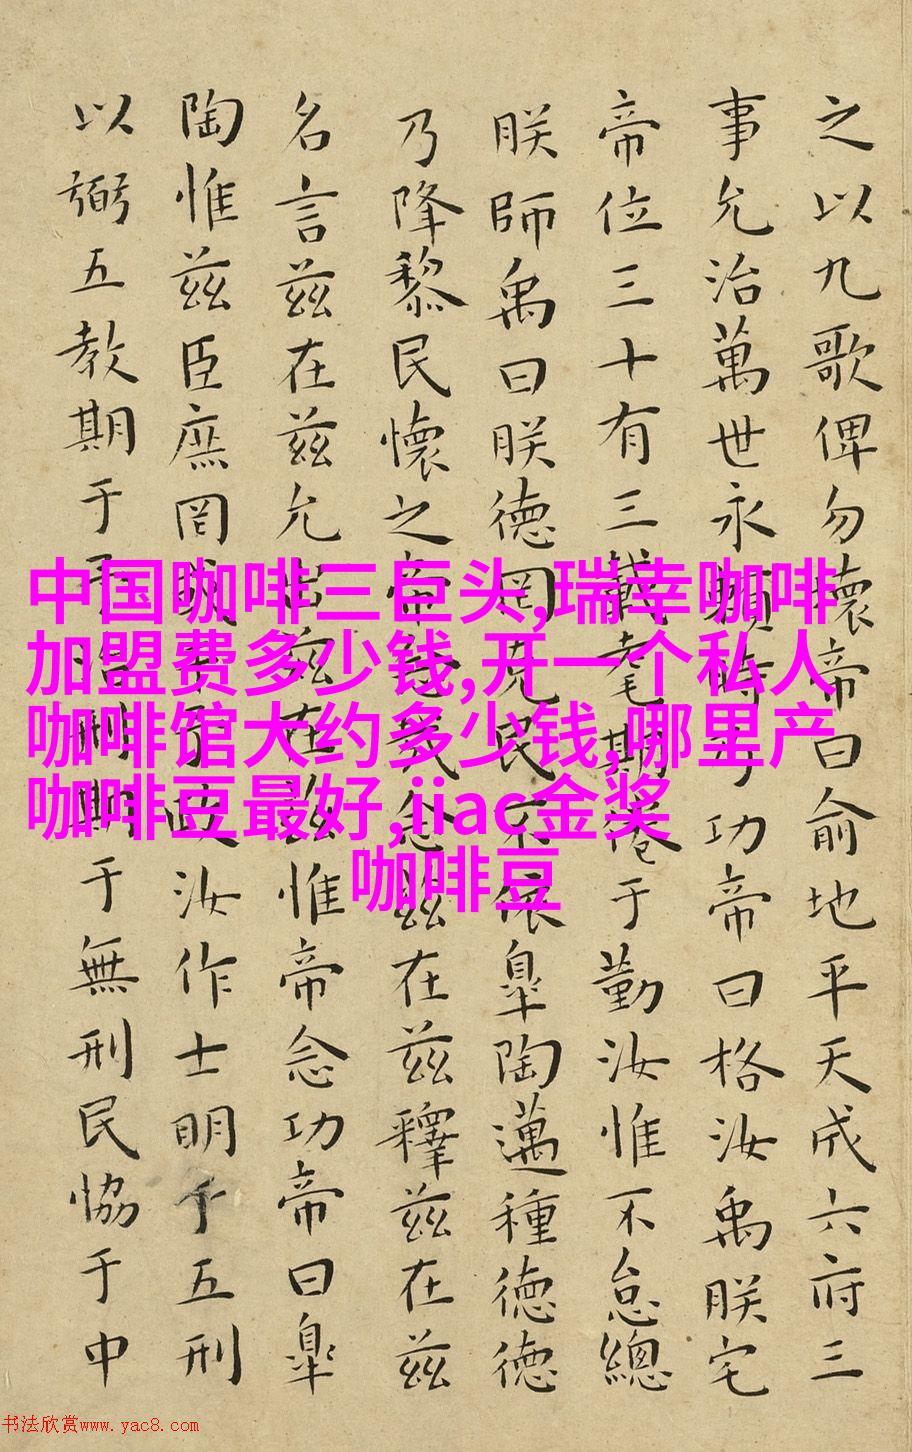 之以九歌俾勿壞帝曰俞地平天成六府三
事允治萬世永賴時乃功帝曰格汝禹朕宅
帝位三十有三載耄期倦于勤汝惟不怠總
朕師禹曰朕德罔克民不依皐陶邁種德德
乃降黎民懷之帝念哉念兹在兹釋兹在兹
名言兹在兹允出兹在兹惟帝念功帝曰皐
陶惟兹臣庶罔或干予政汝作士明于五刑
以弼五教期于予治刑期于無刑民協于中
中国咖啡三巨头,瑞幸咖啡
加盟费多少钱,开一个私人
咖啡馆大约多少钱,哪里产
咖啡豆最好,iiac金奖
咖啡豆
书法欣赏www.yac8.com